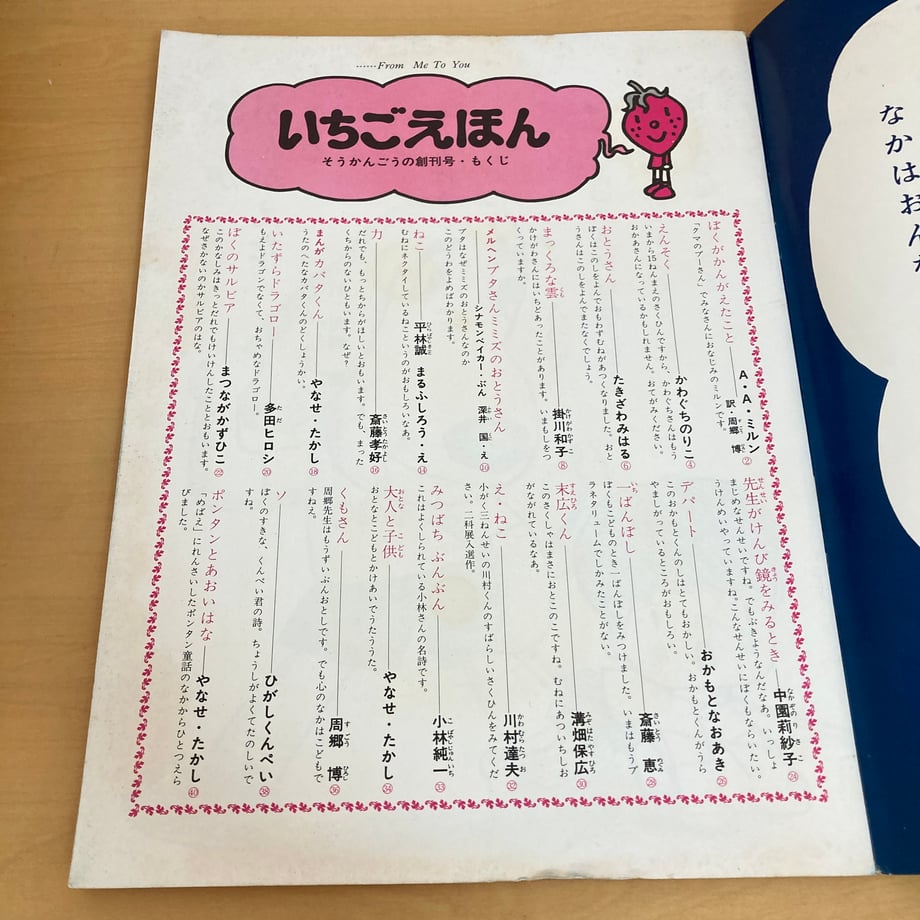 ……From Me To You
いちごえほん
そうかんごうの創刊号・もくじ
ぼくがかんがえたこと――A・A・ミルン②
訳・周郷 博
「クマのプーさん」でみなさんにおなじみのミルンです。
えんそく――かわぐちのりこ④
いまから15ねんまえのさくひんですから、かわぐちさんはもう
おかあさんになっているかもしれません。おてがみください。
おとうさん――たきざわみはる⑥
ぼくはこのしをよんでおもわずむねがあつくなりました。おと
うさんはこのしをよんでまたなくでしょう。
まっくろな雲――掛川和子⑧
かけがわさんにはいちどあったことがあります。いまもしをつ
くっていますか。
メルヘン ブタさんミミズのおとうさん
シナモンベイカー・ぶん 深井 国・え⑩
ブタはなぜミミズのおとうさんなのか
このどうわをよめばわかります。
ねこ――平林誠 まるふしろう・え⑭
むねにネクタイしているねこというのがおもしろいなあ。
力――斎藤孝好⑯
だれでも、もっとちからがほしいとおもいます。でも、まった
くちからのないひともいます。なぜ?
まんが カバタくん――やなせ・たかし⑱
うたのへたなカバタくんのどくしょうかい。
いたずらドラゴロー――多田ヒロシ⑳
もえよドラゴンでなくて、おちゃめなドラゴロー。
ぼくのサルビア――まつながかずひこ㉒
このかなしみはきっとだれでもけいけんしたこととおもいます。
なぜさかないのかサルビアのはな。
先生がけんび鏡をみるとき――中園莉紗子㉔
まじめなせんせいですね。でもぶきようなんだなあ。いっしょ
うけんめいやっていますね。こんなせんせいにぼくもならいたい。
デパート――おかもとなおあき㉖
このおかもとくんのしはとてもおかしい。おかもとくんがうら
やましがっているところがおもしろい。
一ばんぼし――斎藤 恵㉘
ぼくもこどものとき一ばんぼしをみつけました。いまはもうプ
ラネタリュームでしかみたことがない。
末広くん――溝畑保広㉚
このさくしゃはまさにおとこのこですね。むねにあついちしお
がながれているなあ。
え・ねこ――川村達夫㉜
小が三ねんせいの川村くんのすばらしいさくひんをみてくだ
さい。二科展入選作。
みつばち ぶんぶん――小林純一㉝
これはよくしられている小林さんの名詩です。
大人と子供――やなせ・たかし㉞
おとなとこどもとかけあいでうたううた。
くもさん――周郷 博㊱
周郷先生はもうずいぶんおとしです。でも心のなかはこどもで
すねえ。
ソ――ひがしくんぺい㊳
ぼくのすきな、くんぺい君の詩。ちょうしがよくてたのしいで
すね。
ポンタンとあおいはな――やなせ・たかし㊵
「めばえ」にれんさいしたポンタン童話のなかからひとつえら
びました。
なかはおんが